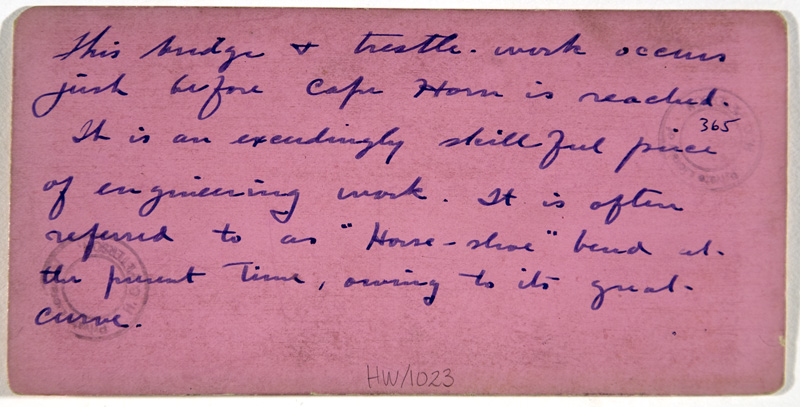 This bridge & trestle-work occurs
just before Cape Horn is reached.
365
It is an exceedingly skillful piece
of engineering work. It is often
referred to as "Horse-shoe" bend at
the present time, owing to its great
curve.
HW/1023